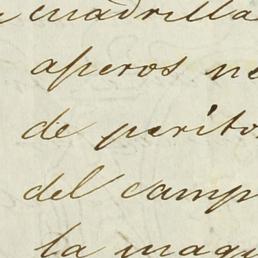 cuadrilla
aperos ne
de perito
del camp
la maqu